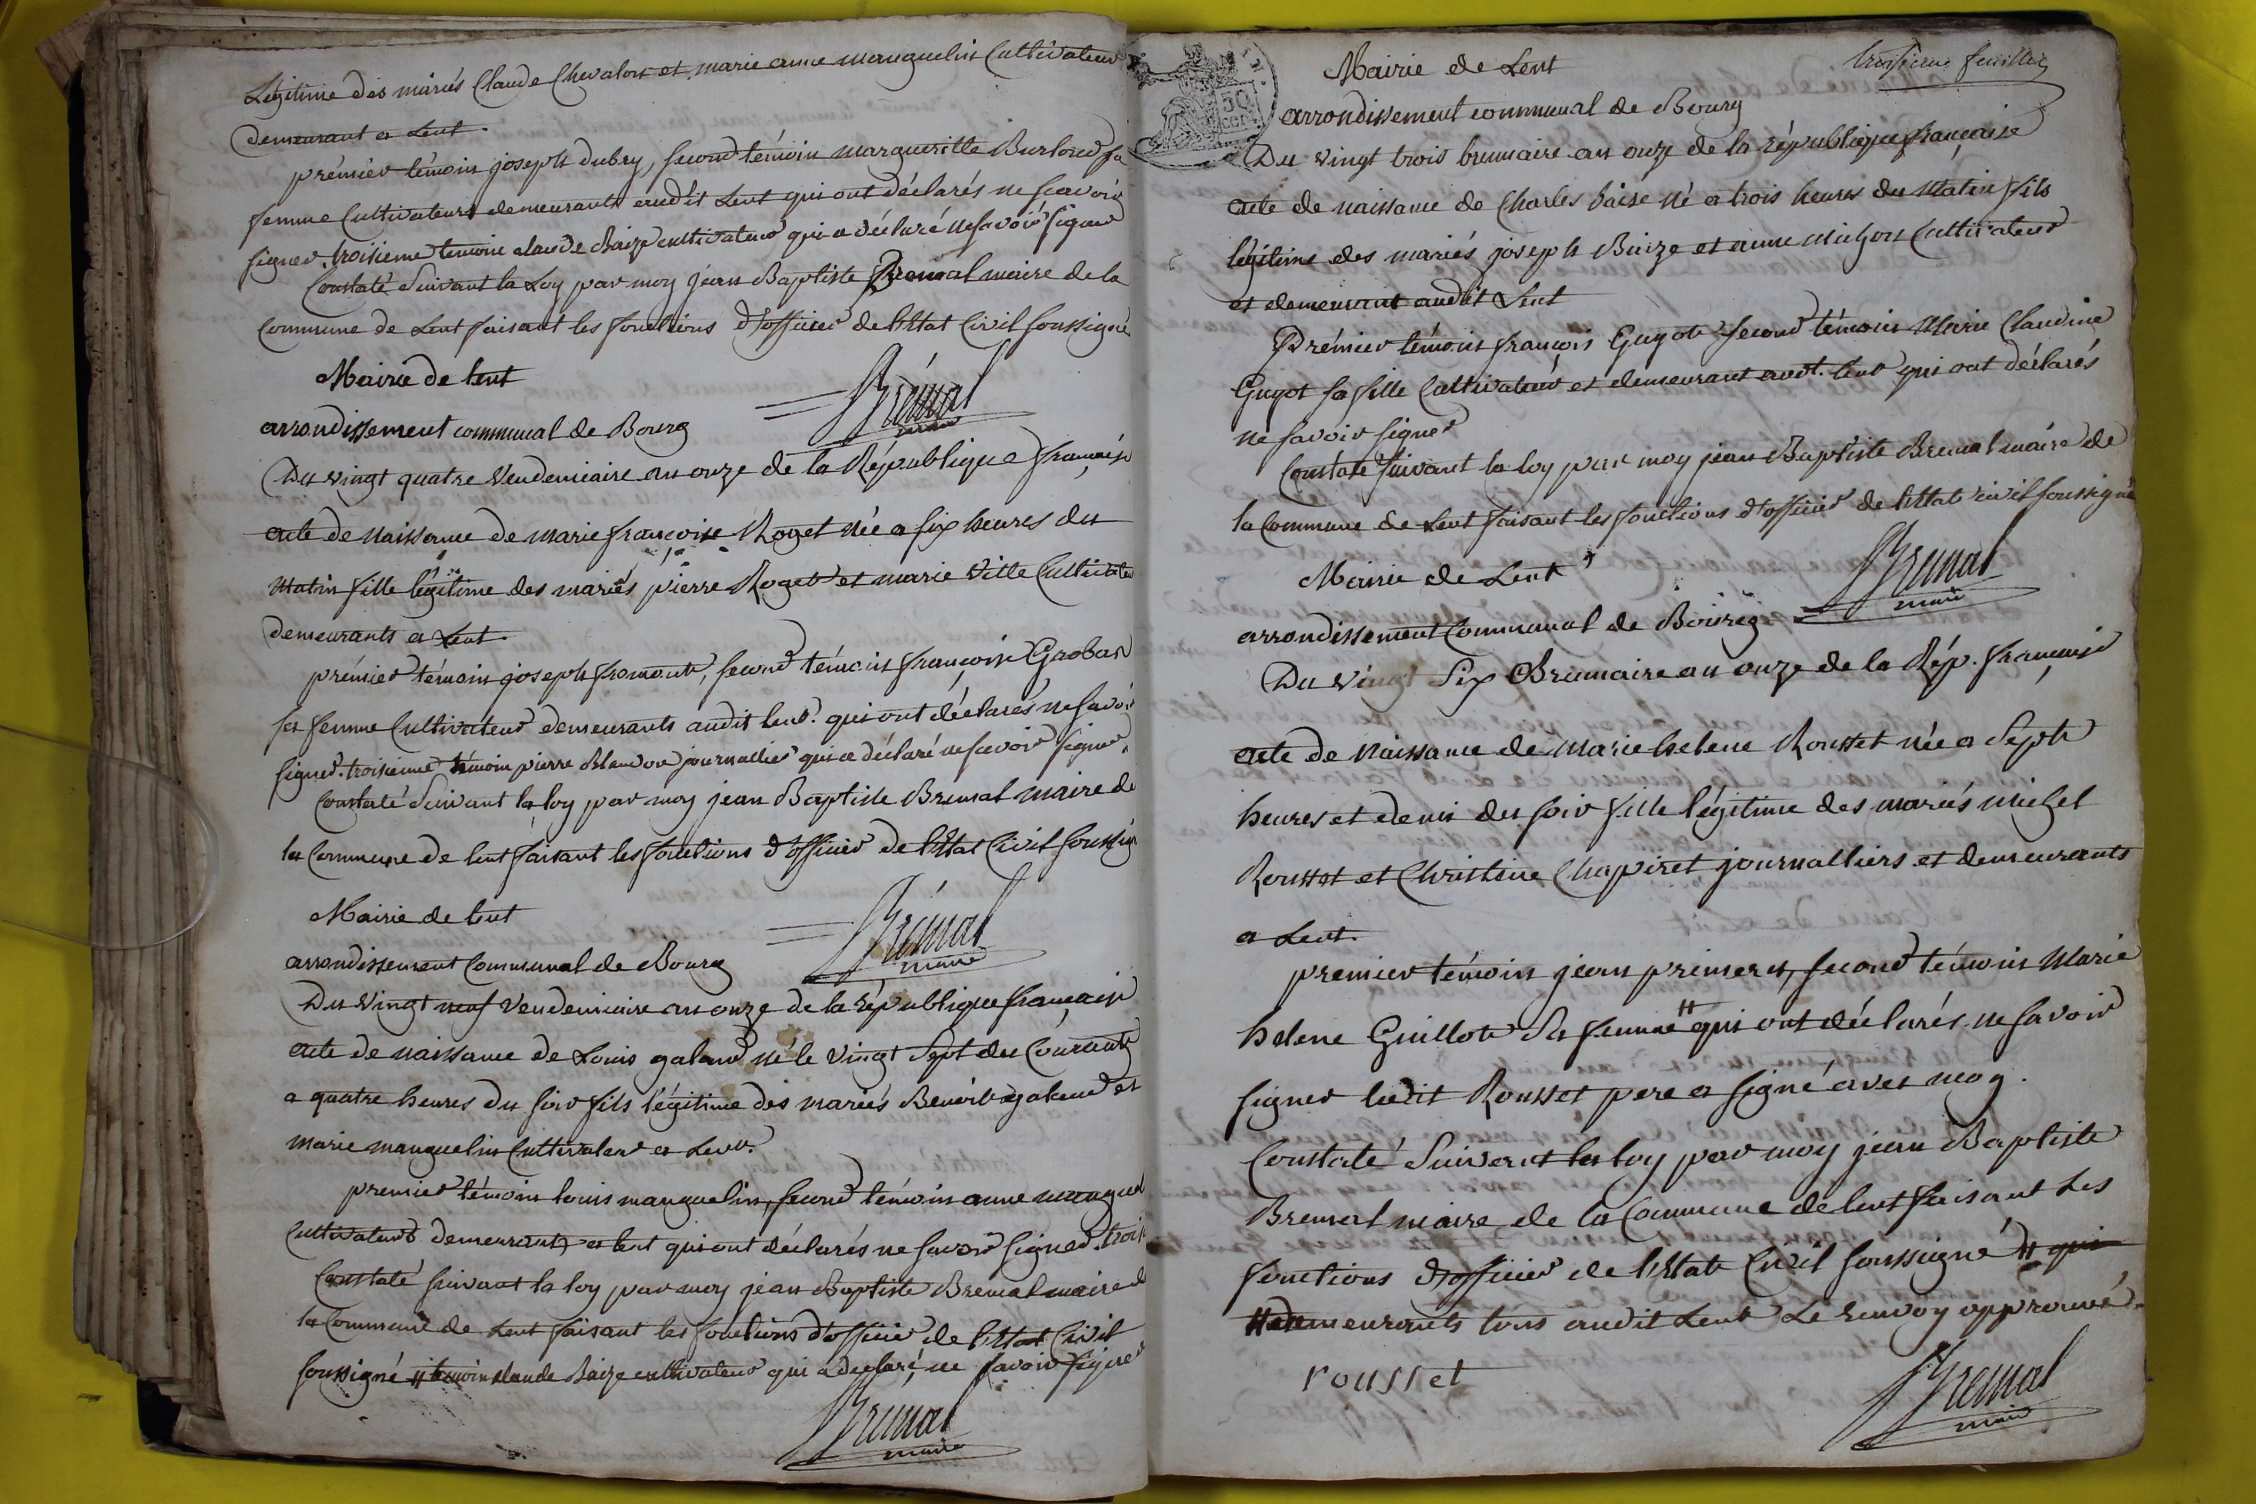 Légitime des mariés Claude Chevalon et marie anne manguelin Cultivateur
demeurant a Lent.
prémier témoin joseph dubry, second témoin margueritte Burlond sa
femme Cultivateurs demeurants audit Lent qui ont déclarés ne scavoir
signer. troisieme temoin claude Baize cultivateur qui a déclaré ne savoir signer
Constaté Suivant la Loy par moy jean Baptiste Bremal maire de la
Commune de Lent faisant les fonctions d'officier de l'Etat Civil soussigné
Mairie de lent
Brémal
maire
arrondissement communal de Bourg
Du vingt quatre Vendemiaire an onze de la République française
acte de Naissance de marie françoise Roget née a six heures du
Matin fille légitime des mariés pierre Roget et marie Ville Cultivateur
demeurants a Lent.
prémier témoin joseph fromont, second témoin françoise Grobas
sa femme Cultivateur demeurants audit lent. qui ont déclarés ne savoir
signer. troisieme témoin pierre Blanc journallier qui a déclaré ne scavoir signer.
Constaté Suivant la loy par moy jean Baptiste Bremal maire de
la Commune de lent faisant les fonctions d'officier de l'Etat Civil soussigné
Mairie de lent
Brémal
maire
arrondissement Communal de Bourg
Du Vingt neuf Vendemiaire an onze de la république française
acte de naissance de Louis galand né le vingt Sept du Courant
a quatre heures du soir fils légitime des mariés Benoit galand et
Marie manguelin Cultivateur a Lent.
premier témoin louis manguelin, second témoin anne manguel
Cultivateurs demeurants a lent qui ont déclarés ne savoir signer. trois
Constaté suivant la loy par moy jean Baptiste Bremal maire de
la Commune de Lent faisant les fonctions d'officier de l'Etat Civil
soussigné // temoin claude Baize cultivateur qui a declaré, ne savoir signer
Bremal
maire
Mairie de Lent
troisieme feuillet
arrondissement communal de Bourg
Du vingt trois brumaire an onze de la république française
acte de naissance de Charles baise né a trois heures du Matin fils
légitime des mariés joseph Baize et anne michon Cultivateur
et demeurant audit Lent
Prémier témoin françois Guyot second témoin Marie Claudine
Guyot sa fille Cultivateur et demeurant audt. lent qui ont déclarés
ne savoir signer
Constaté suivant la loy par moy jean Baptiste Bremal maire de
la Commune de Lent faisant les fonctions d'officier de l'Etat civil soussigné
Mairie de Lent
Bremal
maire
arrondissement Communal de Bourg
Du vingt Six Brumaire an onze de la Rép. française
acte de Naissance de Marie helene Rousset née a Sept
heures et demis du soir fille légitime des mariés michel
Rousset et Christine Chapiret journalliers et demeurants
a Lent.
premier témoin jean primeru, second témoin Marie
helene Guillot Sa femme // qui ont déclarés ne savoir
signer ledit Rousset pere a signé avec moy.
Constaté Suivant la loy par moy jean Baptiste
Bremal maire de la Commune de lent faisant les
fonctions d'officier de l'Etat Civil soussigné // qui
// demeurants tous audit Lent Le renvoy approuvé.
rousset
Bremal
maire